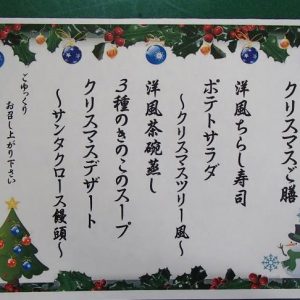 クリスマスご膳
洋風ちらし寿司
ポテトサラダ
～クリスマスツリー風～
洋風茶碗蒸し
３種のきのこのスープ
クリスマスデザート
～サンタクロース饅頭～
ごゆっくり
お召し上がり下さい